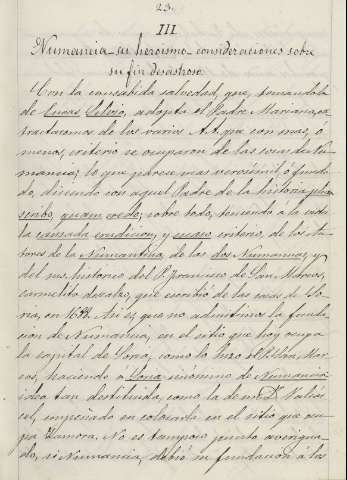 23.
III
Numancia su heroismo consideraciones sobre
su fin desastroso
Con la consabida salvedad, que, tomandola
de Lucas Silvio, adopta el Padre Mariana, ex
tractaremos de los varios A.A. que con mas, ó
menos, criterio se ocuparon de las cosas de Nu
mancia, lo que parece mas verosimil, ó funda
do, diciendo con aquel Padre de la historia plura
scribo, quam credo; sobre todo, teniendo a la vista
la cansada erudicion, y escaso criterio, de los Au
tores de la Numantina, de las dos Numancias, y
del ms. historico del P. Francisco de San Marcos,
carmelita descalzo, que escribió de las cosas de So
ria, en 16 Asi es, que no admitimos la funda
cion de Numancia, en el sitio que hoy ocupa
la capital de Soria, como lo hizo el San Mar
cos, haciendo a Soria sinónimo de Numancia
idea tan destituida, como la de
cel, empeñado en colocarla en el sitio que ocu
pa Zamora. No es tampoco punto averigua
do, si Numancia, debió su fundacion á los